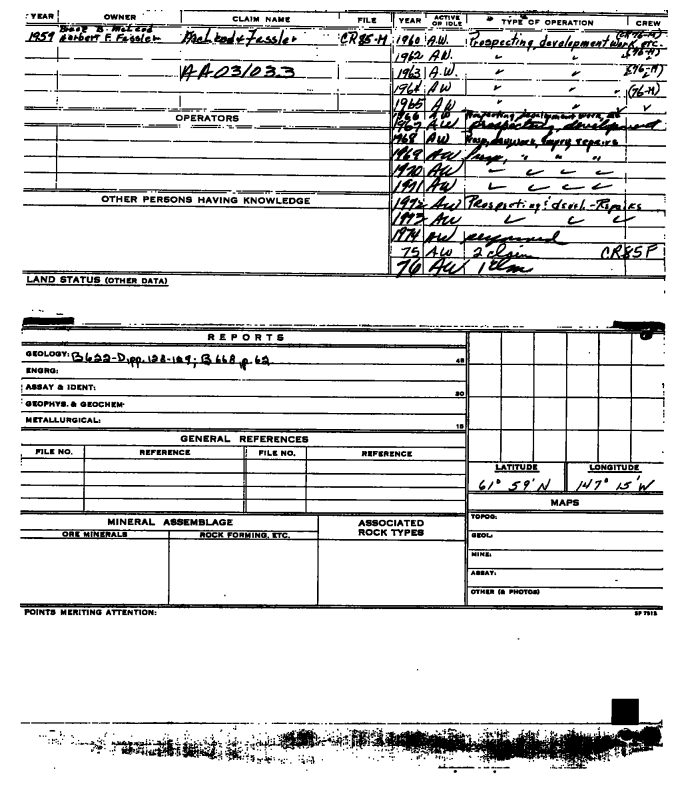 YEAR OWNER CLAIM NAME FILE YEAR ACTIVE OR IDLE TYPE OF OPERATION CREW
B. McLeod
1959 Herbert F. Fessler MacLeod & Fessler CR 85-M 1960 A.W. Prospecting, development work, etc. (76-M)
1962 A.W. " " (76-M)
AA031033 1963 A.W. " " (76-M)
1964 AW " " (76-M)
1965 AW " "
OPERATORS 1966 AW Prospecting development work, etc
1967 AW prospecting, development
1968 AW repairs
1969 AW " " "
1970 AW
1971 AW
OTHER PERSONS HAVING KNOWLEDGE 1972 AW Prospecting & devel.-Repairs
1973 AW
1974 AW
75 AW 2 claim CR85F
76 AW 1 clm
LAND STATUS (OTHER DATA)
REPORTS
GEOLOGY: B622-D, pp. 128-129; B668, p. 62
ENGRG:
ASSAY & IDENT:
GEOPHYS. & GEOCHEM.
METALLURGICAL:
GENERAL REFERENCES
FILE NO. REFERENCE FILE NO. REFERENCE
LATITUDE LONGITUDE
61° 59' N 147° 15' W
MAPS
MINERAL ASSEMBLAGE ASSOCIATED ROCK TYPES
ORE MINERALS ROCK FORMING, ETC.
TOPOG:
GEOL:
MINE:
ASSAY:
OTHER (& PHOTOS)
POINTS MERITING ATTENTION: